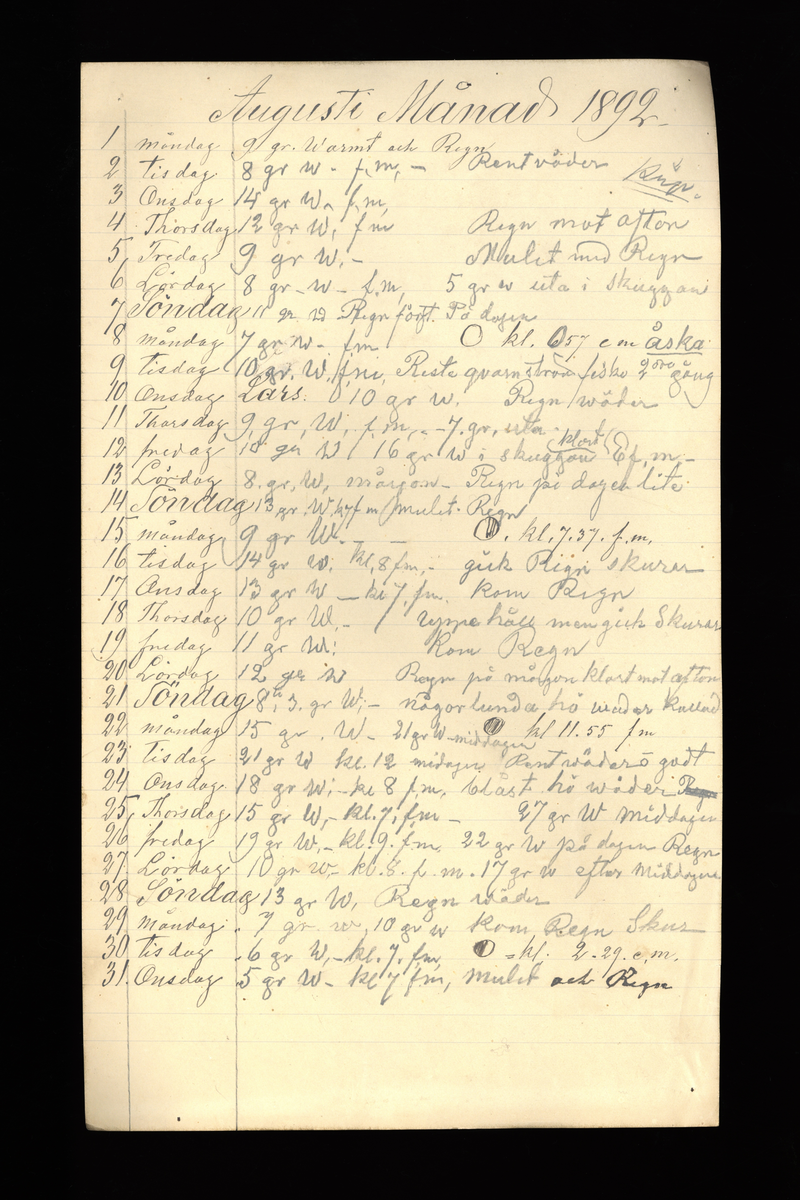 Augusti Månad 1892
1 måndag 9 gr. Warmt och Regn
2 tisdag 8 gr W - f.m, - Rentväder
3 Onsdag 14 gr W. f.m,
4 Thorsdag 12 gr W, f m Regn mot afton
5 Fredag 9 gr W, - Mulet med Regn
6 Lördag 8 gr - W - f.m, 5 gr w uta i skuggan
7 Söndag 11 gr W Regn fört. På dagen
8 måndag 7 gr W - f m kl. 0 57 e m åska
9 tisdag 10 gr. W, f.m, Reste qvarnström fiske 2 dra gång
10 Onsdag Lars. 10 gr W. Regn wöder
11 Thorsdag 9, gr, W, f.m, - 7. gr, uta
12 fredag 10 gr W 16 gr W i skuggan (klart) Ef, m, -
13 Lördag 8. gr, W, mårgon - Regn på dagen lite
14 Söndag 13 gr. W, kl 7 f m mulet. Regn
15 måndag 9 gr W. - kl. 7. 37. f. m.
16 tisdag 14 gr W. kl, 8 f m, - gick Regn skurar
17 Onsdag 13 gr W - kl 7, f m. Kom Regn
18 Thorsdag 10 gr W, - uppe håll men gick Skurar
19 fredag 11 gr W: Kom Regn
20 Lördag 12 gr W Regn på mårgon klart mot afton
21 Söndag 8, 3. gr W, - någorlunda hö wäder
22 måndag 15 gr. W - 21 gr W middagen kl 11. 55 f m
23 Tisdag 21 gr W kl. 12 midagen Rentwäder o godt
24 Onsdag 18 gr W, - kl 8 f.m. blåst hö wäder
25 Thorsdag 15 gr W, - kl. 7, f m - 27 gr W middagen
26 fredag 19 gr W, - kl. 9. f m. 22 gr W på dagen Regn
27 Lördag 10 gr W - kl. 8. f. m. 17 gr w efter middagen
28 Söndag 13 gr W, Regn wäder
29 måndag. 7 gr w, 10 gr w Kom, Regn Skur
30 tisdag. 6 gr W, - kl. 7. f m, - kl. 2 - 29. e. m.
31. Onsdag 5 gr W - kl 7 f m, mulet och Regn